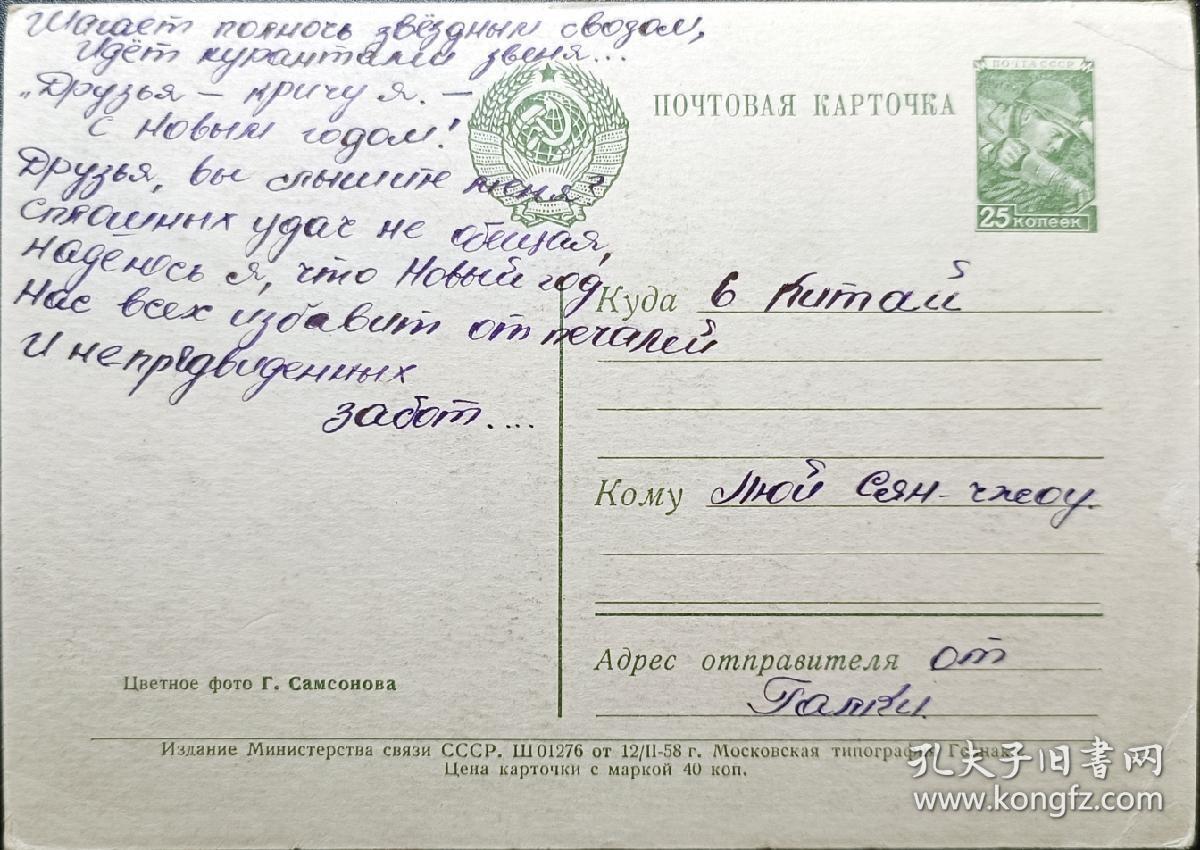 Шагает полночь звёздным сводом,
Идёт курантами звеня...
„Друзья – кричу я. –
С Новым годом!
Друзья, вы слышите меня?
Сплошных удач не обещая,
Надеюсь я, что Новый год
Нас всех избавит от печалей
И непредвиденных
забот....
ПОЧТОВАЯ КАРТОЧКА
ПОЧТА СССР
25 КОПЕЕК
Куда в Китай
Кому Люй Сян-чжоу.
Адрес отправителя от
Галки.
Цветное фото Г. Самсонова
Издание Министерства связи СССР. Ш 01276 от 12/II-58 г. Московская типография Гознака
Цена карточки с маркой 40 коп.
孔夫子旧书网
www.kongfz.com